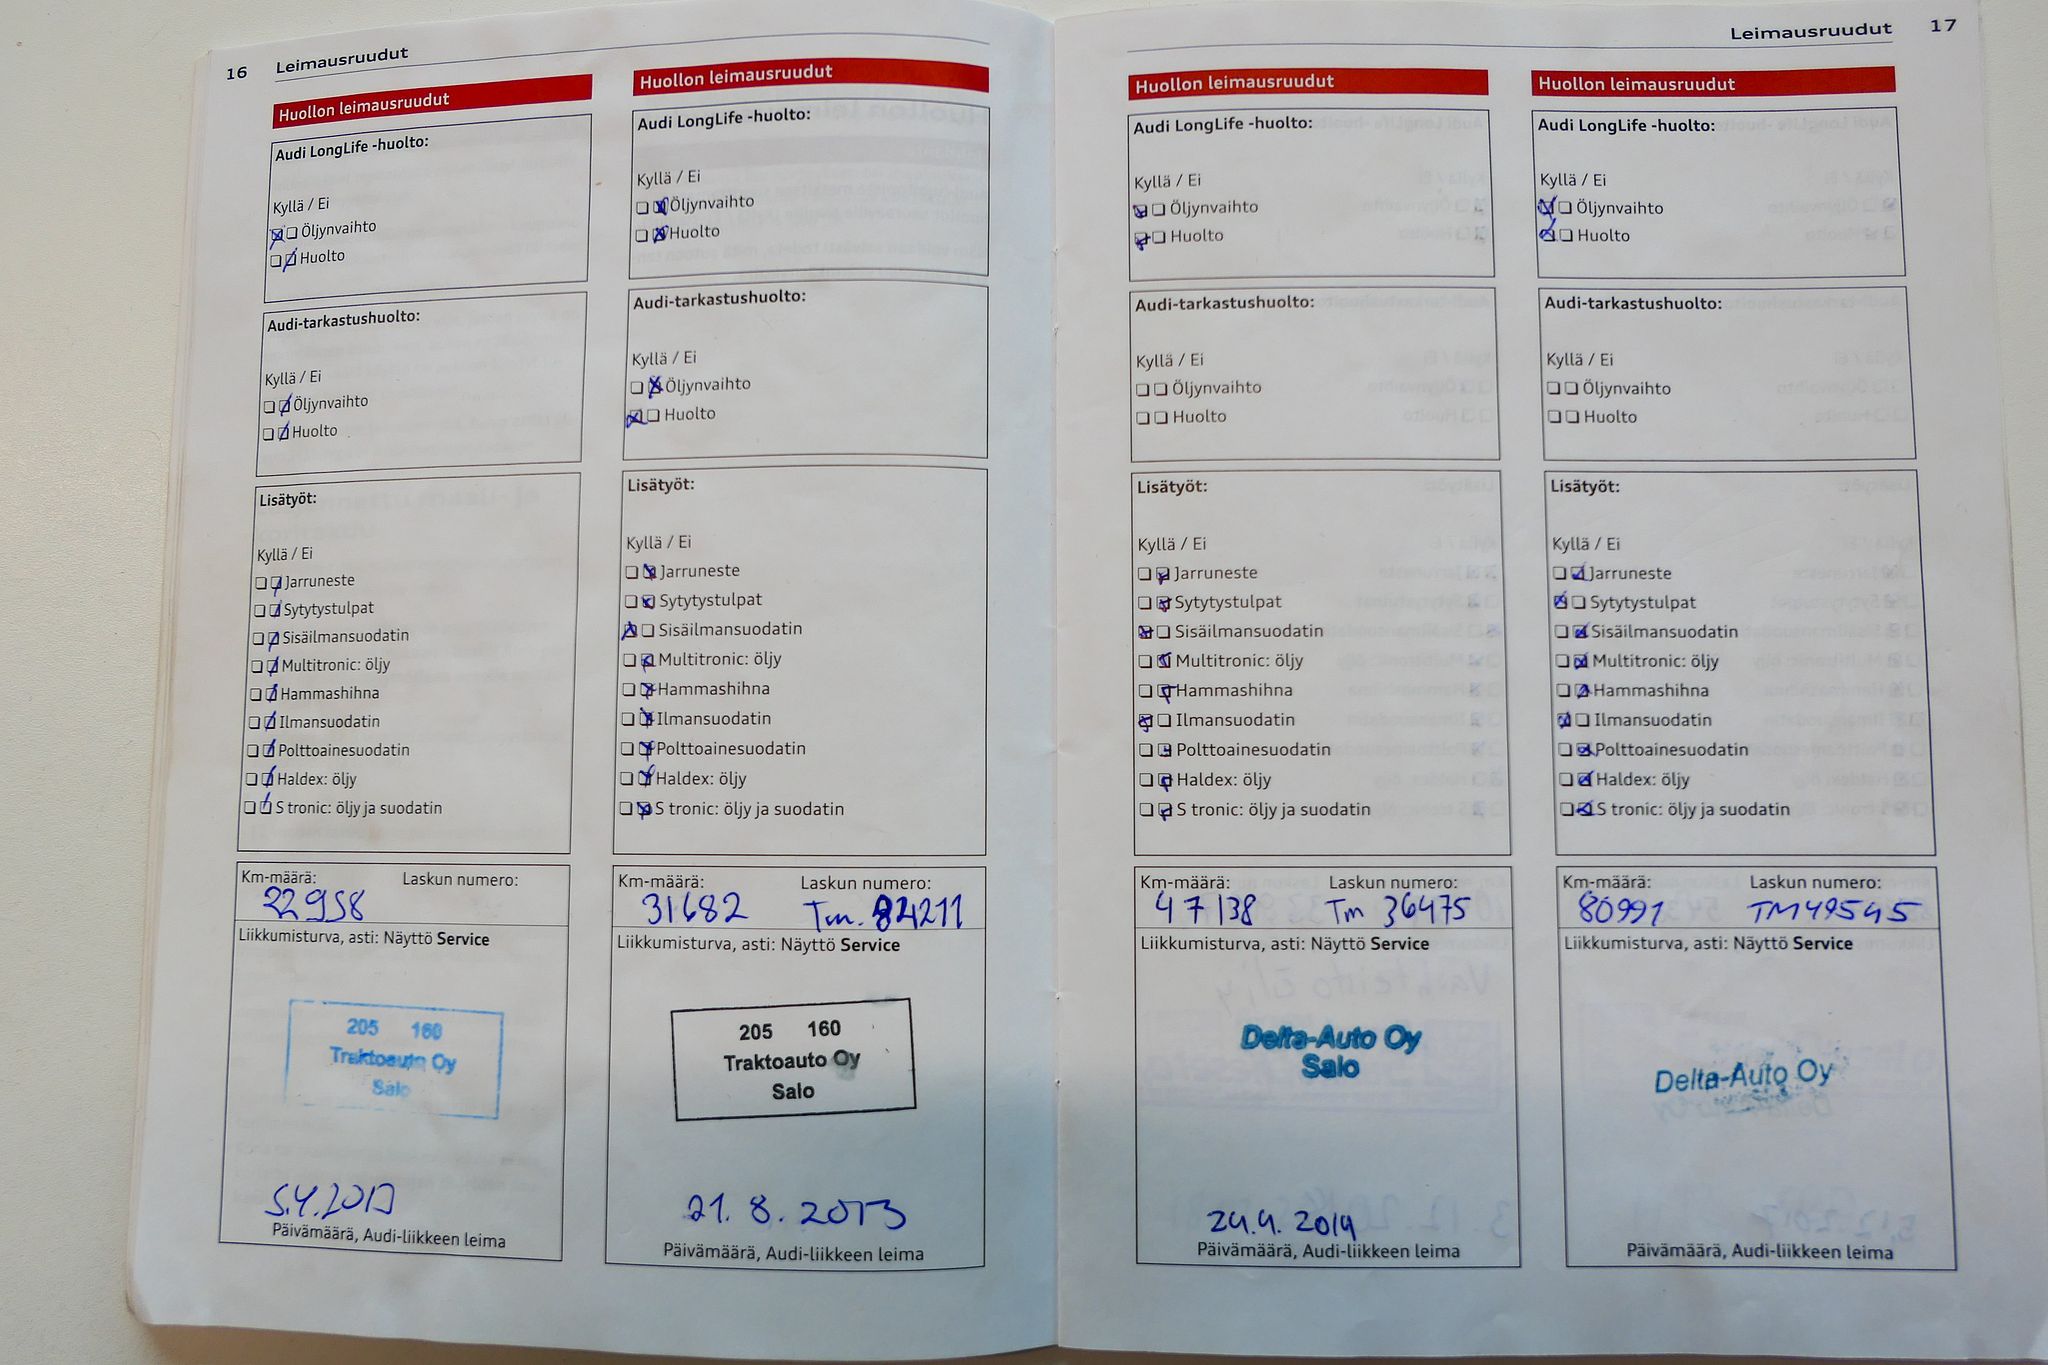 16 Leimausruudut
Huollon leimausruudut
Audi LongLife -huolto:
Kyllä / Ei
Öljynvaihto
Huolto
Audi-tarkastushuolto:
Kyllä / Ei
Öljynvaihto
Huolto
Lisätyöt:
Kyllä / Ei
Jarruneste
Sytytystulpat
Sisäilmansuodatin
Multitronic: öljy
Hammashihna
Ilmansuodatin
Polttoainesuodatin
Haldex: öljy
S tronic: öljy ja suodatin
Km-määrä: Laskun numero:
22958
Liikkumisturva, asti: Näyttö Service
205 160
Traktoauto Oy
Salo
5.4.2013
Päivämäärä, Audi-liikkeen leima
Huollon leimausruudut
Audi LongLife -huolto:
Kyllä / Ei
Öljynvaihto
Huolto
Audi-tarkastushuolto:
Kyllä / Ei
Öljynvaihto
Huolto
Lisätyöt:
Kyllä / Ei
Jarruneste
Sytytystulpat
Sisäilmansuodatin
Multitronic: öljy
Hammashihna
Ilmansuodatin
Polttoainesuodatin
Haldex: öljy
S tronic: öljy ja suodatin
Km-määrä: Laskun numero:
31682 Tm. 84211
Liikkumisturva, asti: Näyttö Service
205 160
Traktoauto Oy
Salo
21. 8. 2013
Päivämäärä, Audi-liikkeen leima
Leimausruudut 17
Huollon leimausruudut
Audi LongLife -huolto:
Kyllä / Ei
Öljynvaihto
Huolto
Audi-tarkastushuolto:
Kyllä / Ei
Öljynvaihto
Huolto
Lisätyöt:
Kyllä / Ei
Jarruneste
Sytytystulpat
Sisäilmansuodatin
Multitronic: öljy
Hammashihna
Ilmansuodatin
Polttoainesuodatin
Haldex: öljy
S tronic: öljy ja suodatin
Km-määrä: Laskun numero:
47138 Tm 36475
Liikkumisturva, asti: Näyttö Service
Delta-Auto Oy
Salo
24.4. 2014
Päivämäärä, Audi-liikkeen leima
Huollon leimausruudut
Audi LongLife -huolto:
Kyllä / Ei
Öljynvaihto
Huolto
Audi-tarkastushuolto:
Kyllä / Ei
Öljynvaihto
Huolto
Lisätyöt:
Kyllä / Ei
Jarruneste
Sytytystulpat
Sisäilmansuodatin
Multitronic: öljy
Hammashihna
Ilmansuodatin
Polttoainesuodatin
Haldex: öljy
S tronic: öljy ja suodatin
Km-määrä: Laskun numero:
80991 TM49545
Liikkumisturva, asti: Näyttö Service
Delta-Auto Oy
Päivämäärä, Audi-liikkeen leima